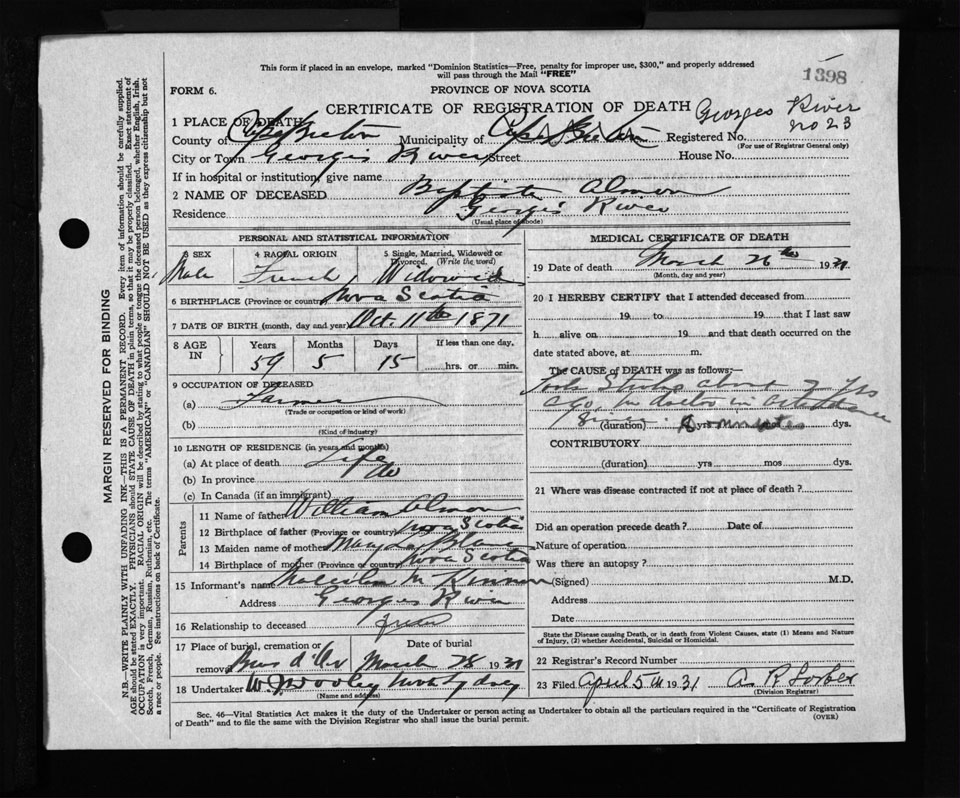 This form if placed in an envelope, marked "Dominion Statistics—Free, penalty for improper use, $300," and properly addressed
will pass through the Mail "FREE"
1398
FORM 6.
PROVINCE OF NOVA SCOTIA
CERTIFICATE OF REGISTRATION OF DEATH
Georges River
No 23
1 PLACE OF DEATH
County of Cape Breton Municipality of Cape Breton Registered No.
(For use of Registrar General only)
City or Town Georges River Street House No.
If in hospital or institution, give name
2 NAME OF DECEASED Baptiste Almon
Residence Georges River
(Usual place of abode)
PERSONAL AND STATISTICAL INFORMATION
3 SEX 4 RACIAL ORIGIN 5 Single, Married, Widowed or Divorced. (Write the word)
Male French Widowed
6 BIRTHPLACE (Province or country) Nova Scotia
7 DATE OF BIRTH (month, day and year) Oct. 11th 1871
8 AGE IN Years Months Days If less than one day,
59 5 15 hrs. or min.
9 OCCUPATION OF DECEASED
(a) Farmer
(Trade or occupation or kind of work)
(b)
(Kind of industry)
10 LENGTH OF RESIDENCE (in years and months)
(a) At place of death Life
(b) In province do
(c) In Canada (if an immigrant)
Parents
11 Name of father William Almon
12 Birthplace of father (Province or country) Nova Scotia
13 Maiden name of mother Mary
14 Birthplace of mother (Province or country) Nova Scotia
15 Informant's name
Address Georges River
16 Relationship to deceased
17 Place of burial, cremation or removal Date of burial
Bras d'Or March 28 1931
18 Undertaker W. J. Dooley North Sydney
(Name and address)
MEDICAL CERTIFICATE OF DEATH
19 Date of death March 26th 1931
(Month, day and year)
20 I HEREBY CERTIFY that I attended deceased from
19 to 19 that I last saw
h alive on 19 and that death occurred on
date stated above, at m.
The CAUSE of DEATH was as follows:—
Took Stroke about 2 yrs
ago, no doctor in attendance
(duration) yrs minutes dys.
CONTRIBUTORY
(duration) yrs mos dys.
21 Where was disease contracted if not at place of death?
Did an operation precede death? Date of
Nature of operation
Was there an autopsy?
(Signed) M.D.
Address
Date
State the Disease causing Death, or in death from Violent Causes, state (1) Means and Nature
of Injury, (2) whether Accidental, Suicidal or Homicidal.
22 Registrar's Record Number
23 Filed April 5th 1931 A R Forbes
(Division Registrar)
Sec. 46—Vital Statistics Act makes it the duty of the Undertaker or person acting as Undertaker to obtain all the particulars required in the "Certificate of Registration
of Death" and to file the same with the Division Registrar who shall issue the burial permit.
(OVER)
MARGIN RESERVED FOR BINDING
N.B.—WRITE PLAINLY WITH UNFADING INK—THIS IS A PERMANENT RECORD. Every item of information should be carefully supplied.
AGE should be stated EXACTLY. PHYSICIANS should STATE CAUSE OF DEATH in plain terms, so that it may be properly classified. Exact statement of
OCCUPATION is very important. RACIAL ORIGIN will be described by stating to what people or tongue the deceased person belonged, whether English, Irish,
Scotch, French, German, Russian, Ruthenian, etc. The terms "AMERICAN" or "CANADIAN" SHOULD NOT BE USED as they express citizenship but not
a race or people. See instructions on back of Certificate.